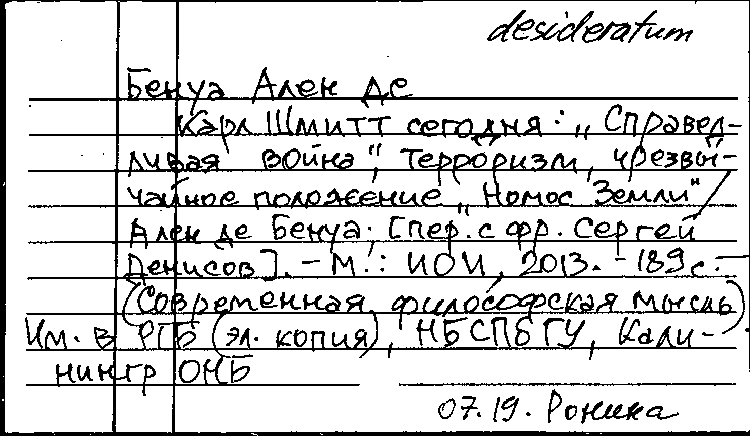 desideratum
Бенуа Ален де
Карл Шмитт сегодня: „Справед-
ливая война“, терроризм, чрезвы-
чайное положение, „Номос Земли“ /
Ален де Бенуа; [пер. с фр. Сергей
Денисов]. – М.: ИОИ, 2013. – 189 с. –
(Современная философская мысль).
Им. в РГБ (эл. копия), НБСПбГУ, Кали-
нингр ОНБ
07.19. Ронина